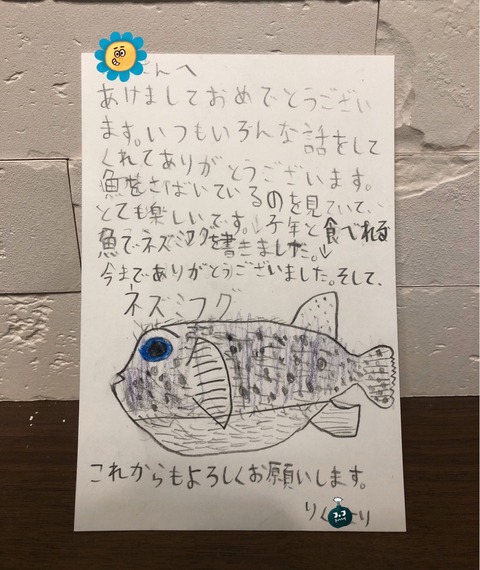 さんへ
あけましておめでとうござい
ます。いつもいろんな話をして
くれてありがとうございます。
魚をさばいているのを見ていて、
とても楽しいです。↓子年と食べれる
魚でネズミフグを書きました。↓
今までありがとうございました。そして、
ネズミフグ
これからもよろしくお願いします。
りく より